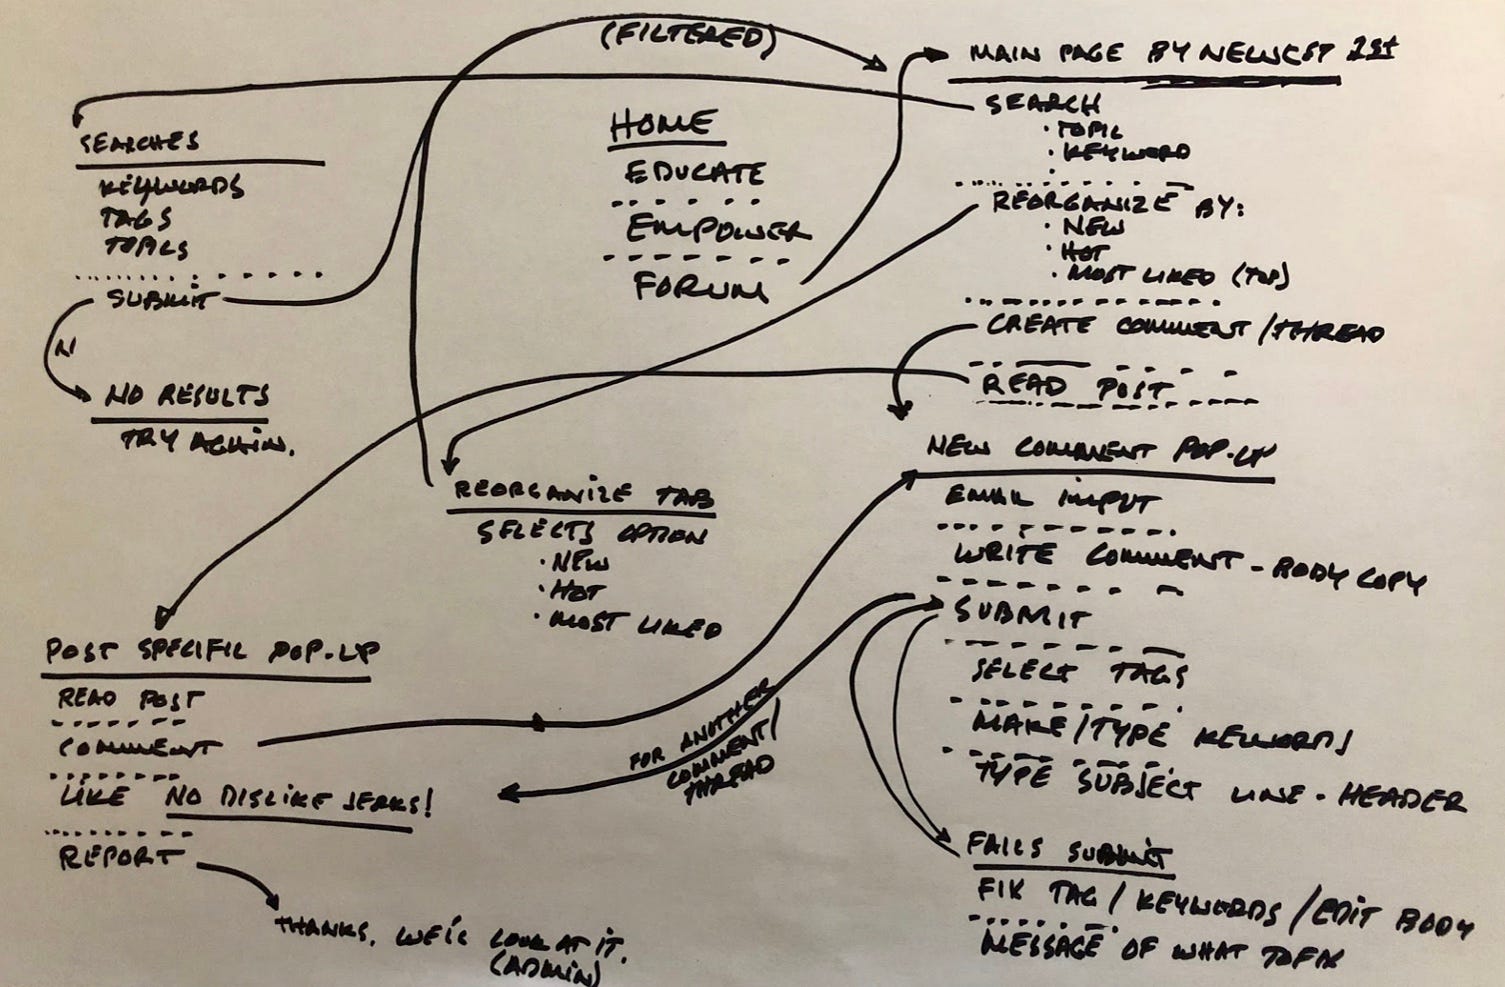 (FILTERED)
MAIN PAGE BY NEWEST 1st
SEARCH
· TOPIC
· KEYWORD
REORGANIZE BY:
· NEW
· HOT
· MOST LIKED (TOP)
CREATE COMMENT/THREAD
READ POST
SEARCHES
KEYWORDS
TAGS
TOPICS
SUBMIT
N
NO RESULTS
TRY AGAIN.
HOME
EDUCATE
EMPOWER
FORUM
REORGANIZE TAB
SELECTS OPTION
· NEW
· HOT
· MOST LIKED
NEW COMMENT POP-UP
EMAIL INPUT
WRITE COMMENT - BODY COPY
SUBMIT
SELECT TAGS
MAKE/TYPE KEYWORDS
TYPE SUBJECT LINE - HEADER
FAILS SUBMIT
FIX TAG/KEYWORDS/EDIT BODY
MESSAGE OF WHAT TO FIX
POST SPECIFIC POP-UP
READ POST
COMMENT
LIKE NO DISLIKE JERKS!
REPORT
THANKS, WE'LL LOOK AT IT.
(ADMIN)
FOR ANOTHER
COMMENT/
THREAD